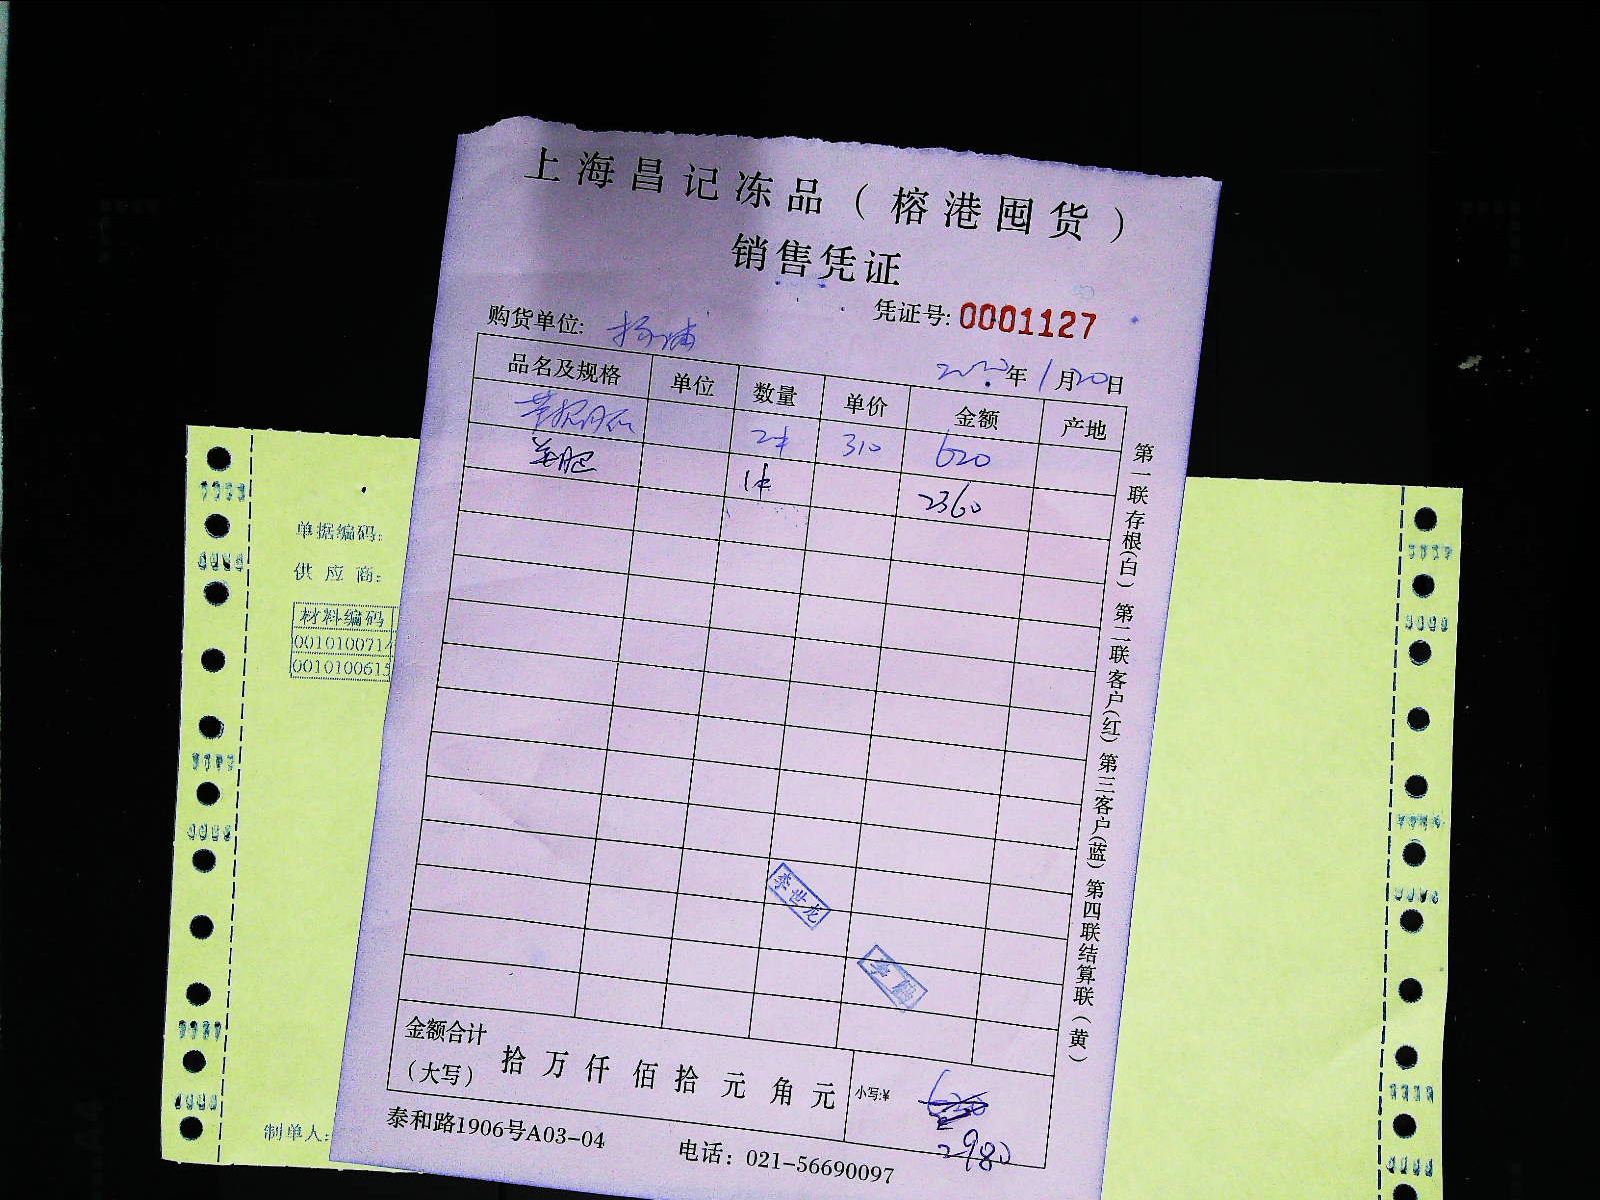 上海昌记冻品（榕港囤货）
销售凭证
凭证号: 0001127
购货单位: 杨浦
2020年1月20日
品名及规格 单位 数量 单价 金额 产地
2件 310 620
羊肥 1件 2360
金额合计（大写） 拾 万 仟 佰 拾 元 角 元 小写:¥ 2980
泰和路1906号A03-04 电话：021-56690097
第一联存根（白）第二联客户（红）第三客户（蓝）第四联结算联（黄）
李世龙
单据编码:
供应商:
材料编码
0010100714
0010100615
制单人: